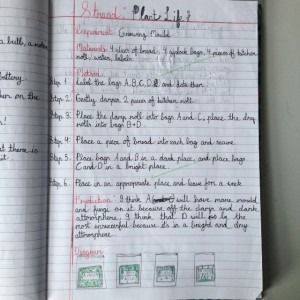 Strand : Plant Life?
Experiment: Growing Mould
Materials: 4 slices of bread, 4 ziplock bags, 4 pieces of kitchen
roll, water, labels
Method:
Step 1: Label the bags A, B, C, D and date them
Step 2: Gently dampen 2 pieces of kitchen roll.
Step 3: Place the damp roll into bags A and C, place the dry
rolls into bags B+D.
Step 4: Place a piece of bread into each bag and secure.
Step 5: Place bags A and B in a dark place, and place bags
C and D in a bright place.
Step 6: Place in an appropriate place and leave for a week
Prediction: I think A will have more mould
and fungi on it because of the damp and dark
atmosphere. I think that D will be the
most unsuccessful because its in a bright and dry
atmosphere
Diagram
a bulb, a
battery.
on the
there is